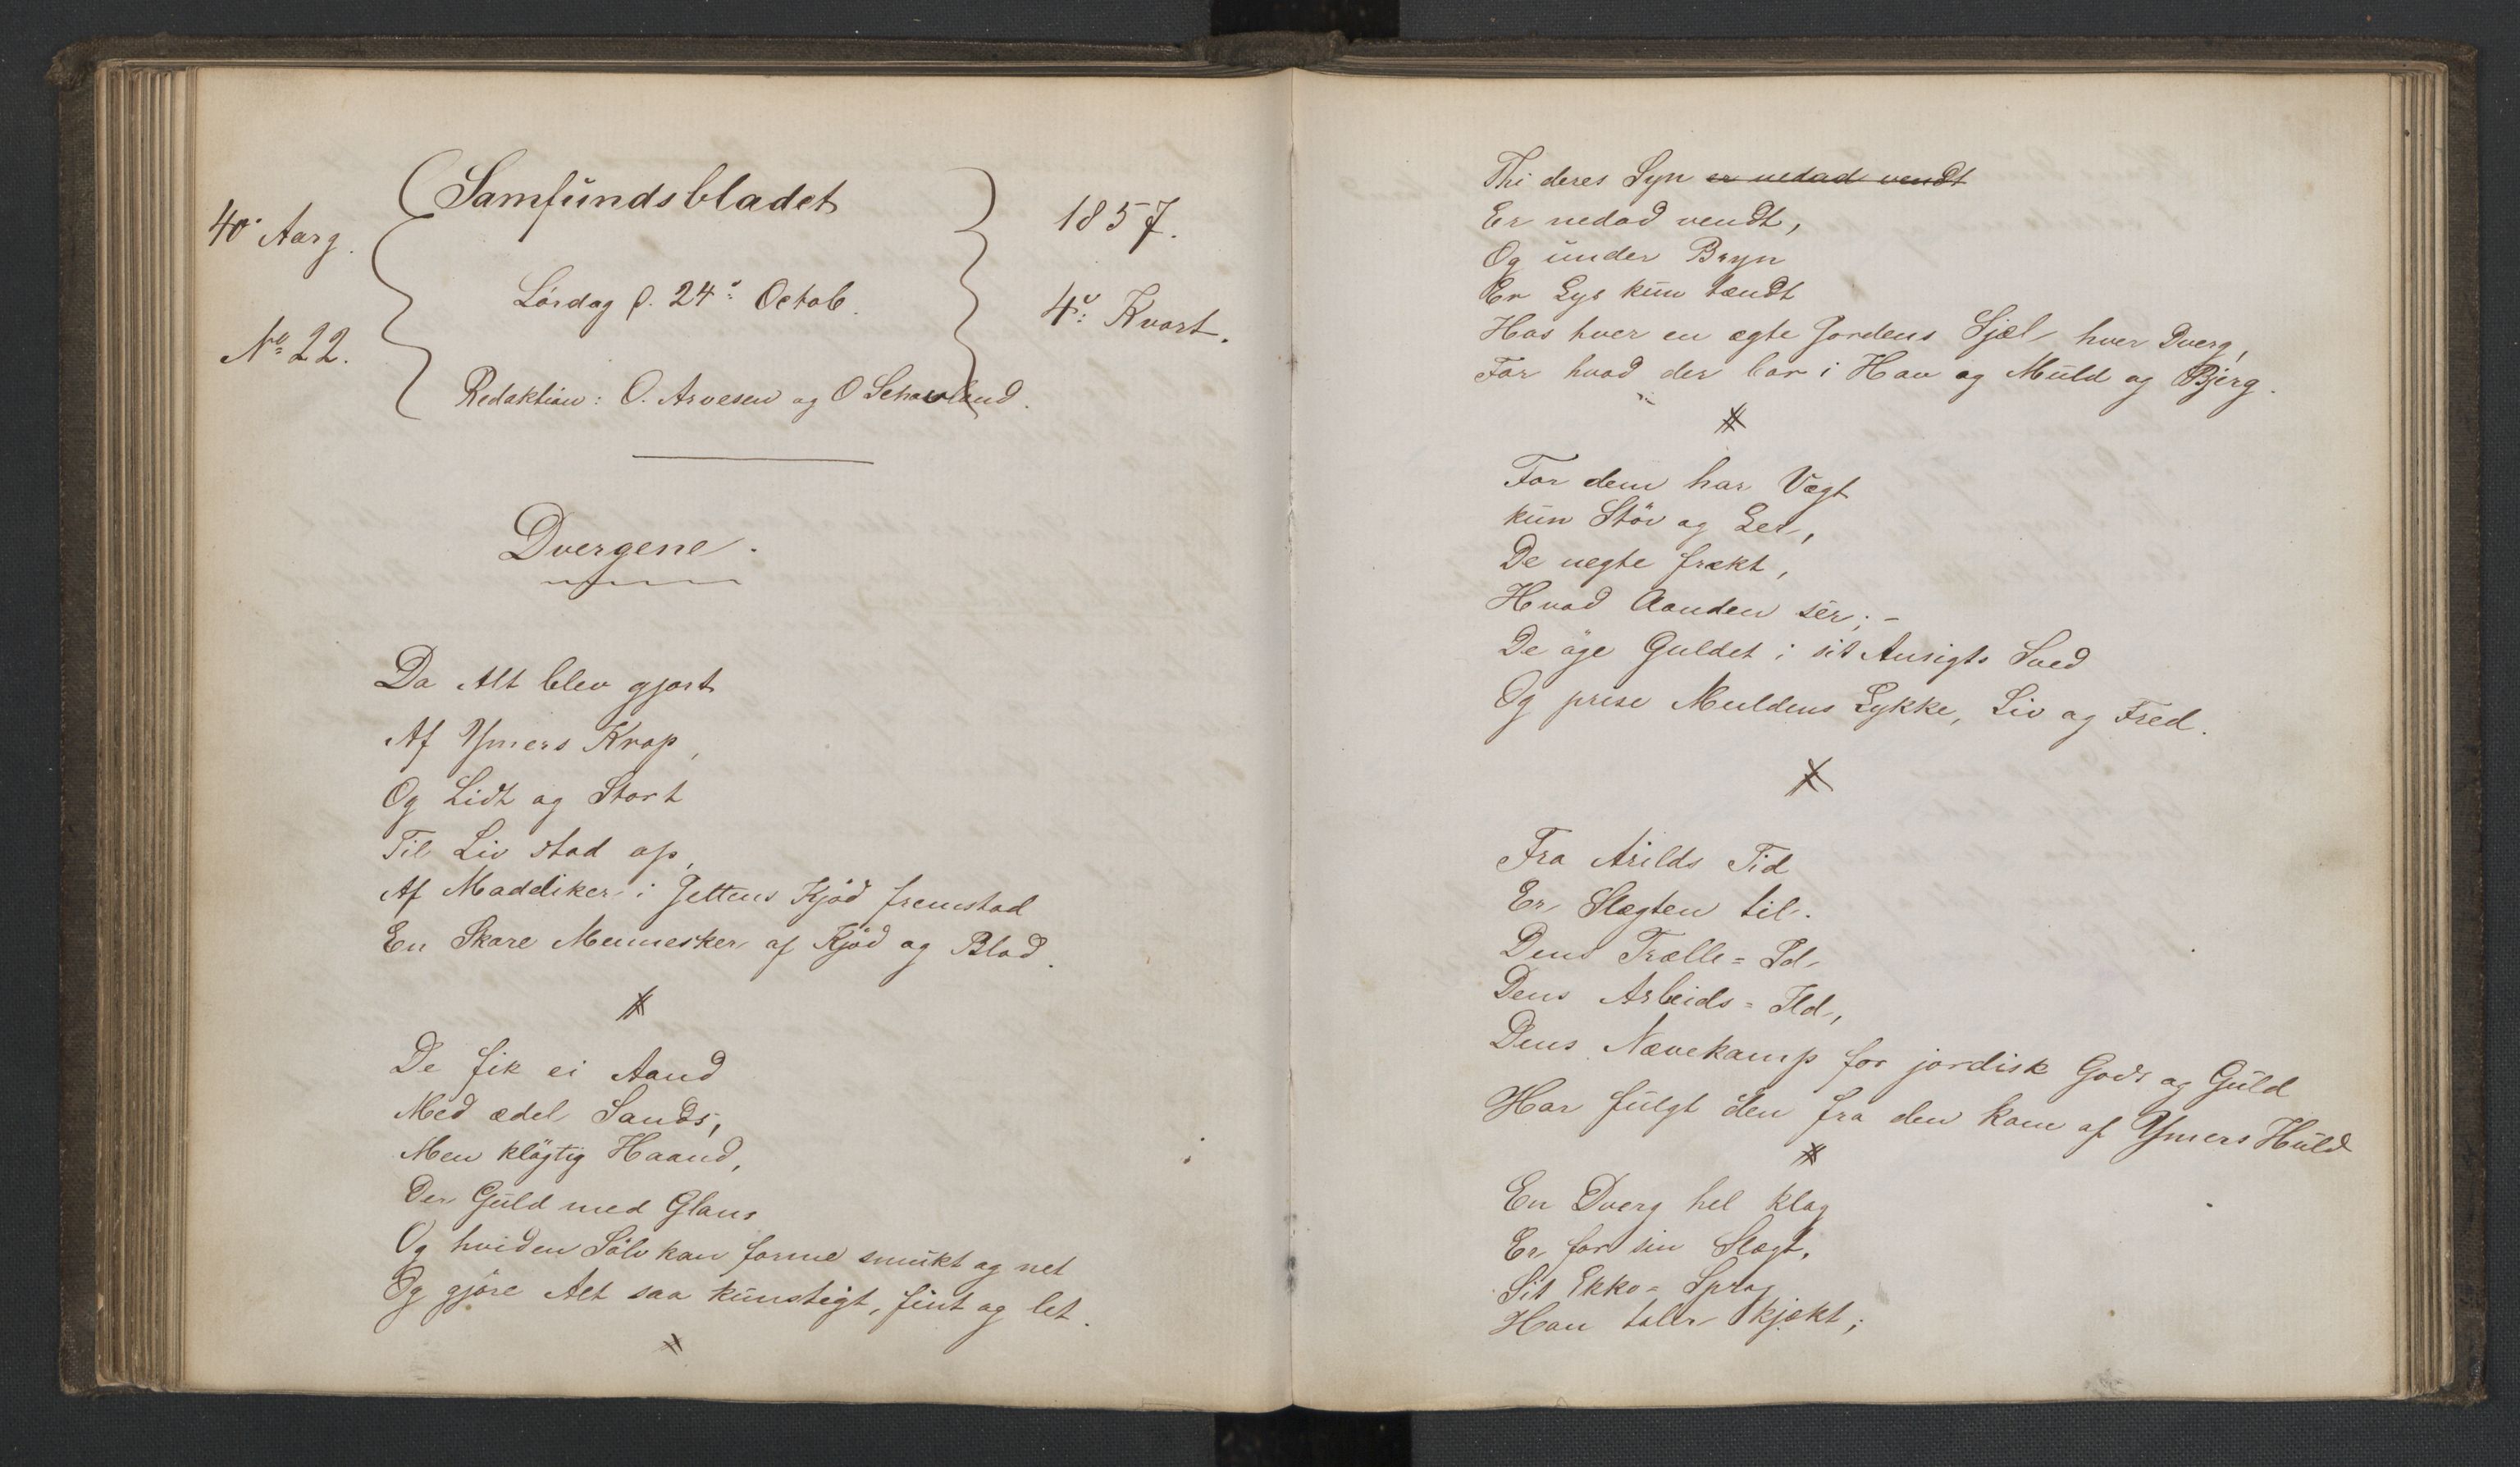 Samfundsbladet
40° Aarg.
1857.
Lördag d. 24de Octob.
4de Kvart.
No 22.
Redaktion: O. Arvesen og O Schavland.
Dvergene.
Da Alt blev gjort
Af Ymers Krop,
Og Lidt og Stort
Til Liv stod op,
Af Maddiker i Jettens Kjöd fremstod
En Skare Mennesker af Kjöd og Blod.
De fik ei Aand
Med ædel Sands,
Men klögtig Haand,
Der Guld med Glans
Og hviden Sölv kan forme smukt og net
Og gjöre Alt saa kunstigt, fint og let.
Thi deres Syn er nedad vendt
Er nedad vendt,
Og under Bryn
Er Lys kun tændt
Hos hver en ægte Jordens Sjæl, hver Dverg,
For hvad der bor i Hav og Muld og Bjerg.
For dem har Vægt
kun Stöv og Ler,
De negte frækt,
Hvad Aanden sér; –
De öge Guldet i sit Ansigts Sved
Og prise Muldens Lykke, Liv og Fred.
Fra Arilds Tid
Er Slægten til.
Dens Trælle=Id,
Dens Arbeids=Ild,
Dens Nævekamp for jordisk Gods og Guld
Har fulgt den fra den kom af Ymers Huld
En Dverg hel klog
Er for sin Slægt,
Sit Ekko=Sprog
Han taler kjækt;